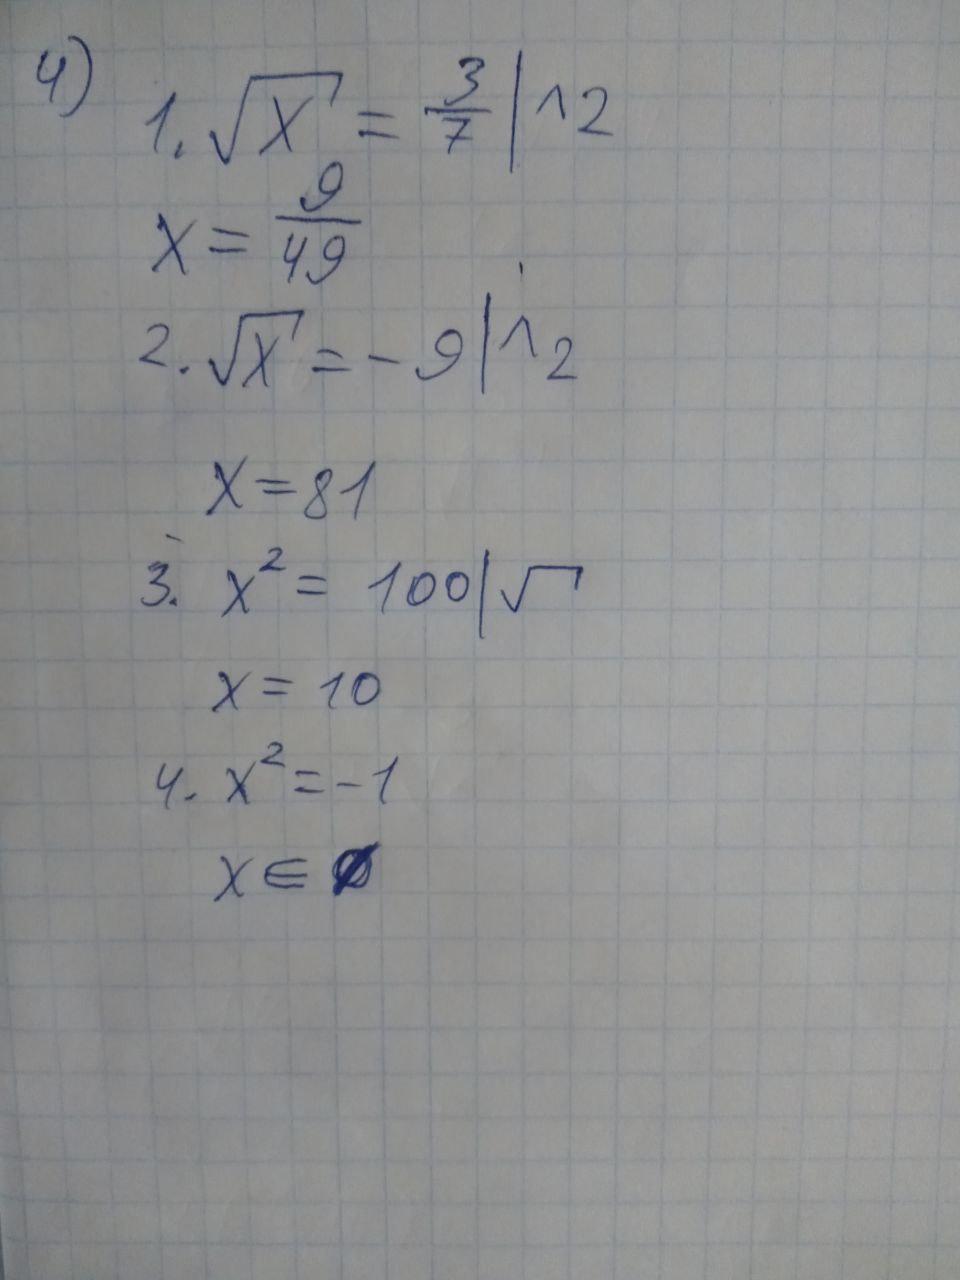 4)
1. √x = 3/7 | ^2
x = 9/49
2. √x = -9 | ^2
x = 81
3. x² = 100 | √
x = 10
4. x² = -1
x ∈ ∅